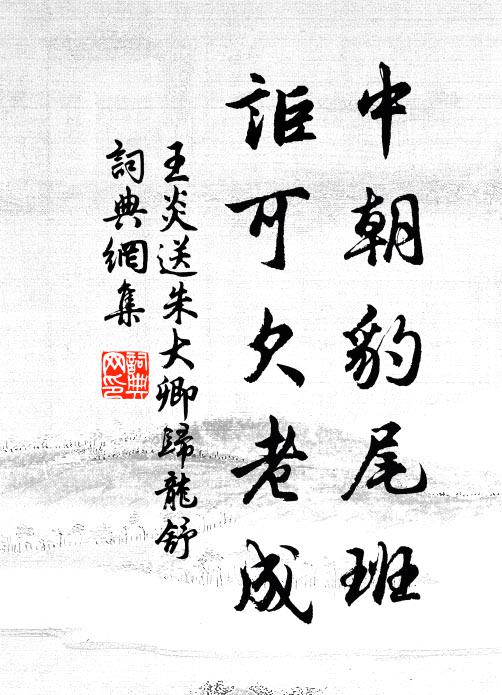 中朝豹尾班
詎可欠老成
王炎送朱大卿歸龍舒
詞典網集
詞典
网印